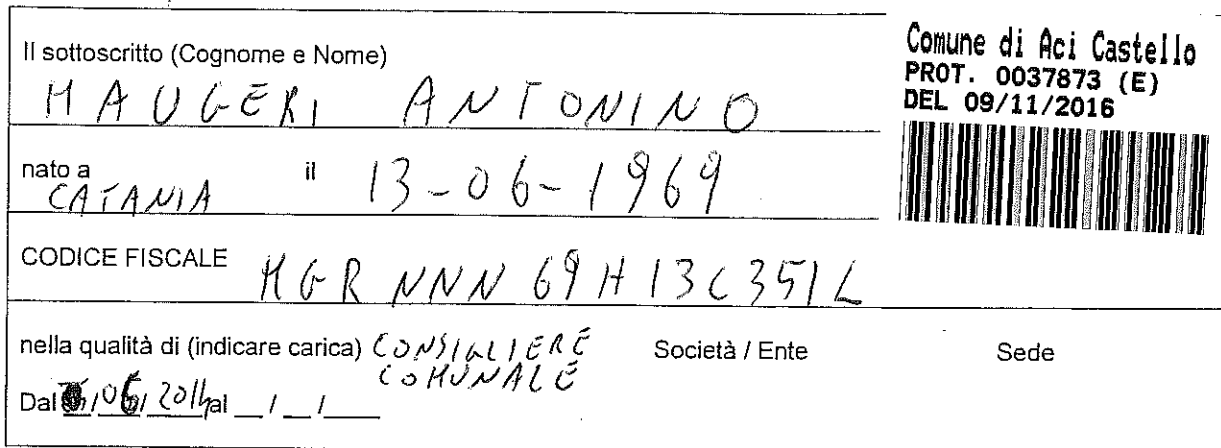 Il sottoscritto (Cognome e Nome)
MAUGERI ANTONINO
Comune di Aci Castello
PROT. 0037873 (E)
DEL 09/11/2016
nato a CATANIA il 13-06-1969
CODICE FISCALE MGR NNN 69H13C351L
nella qualità di (indicare carica) CONSIGLIERE COMUNALE Società / Ente Sede
Dal /06/2014 al __/__/____